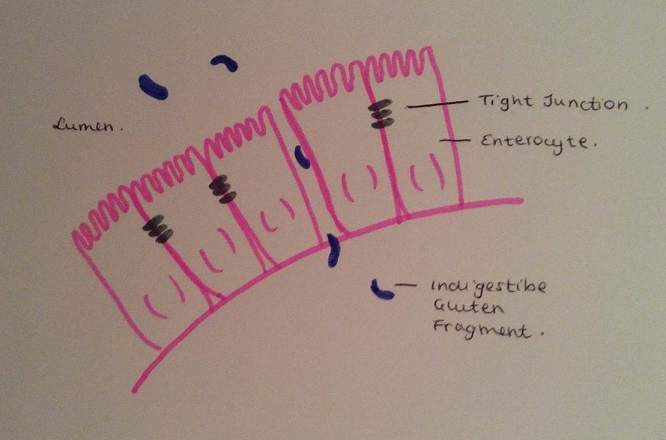 Lumen.
Tight Junction.
Enterocyte.
Indigestibe
Gluten
Fragment.